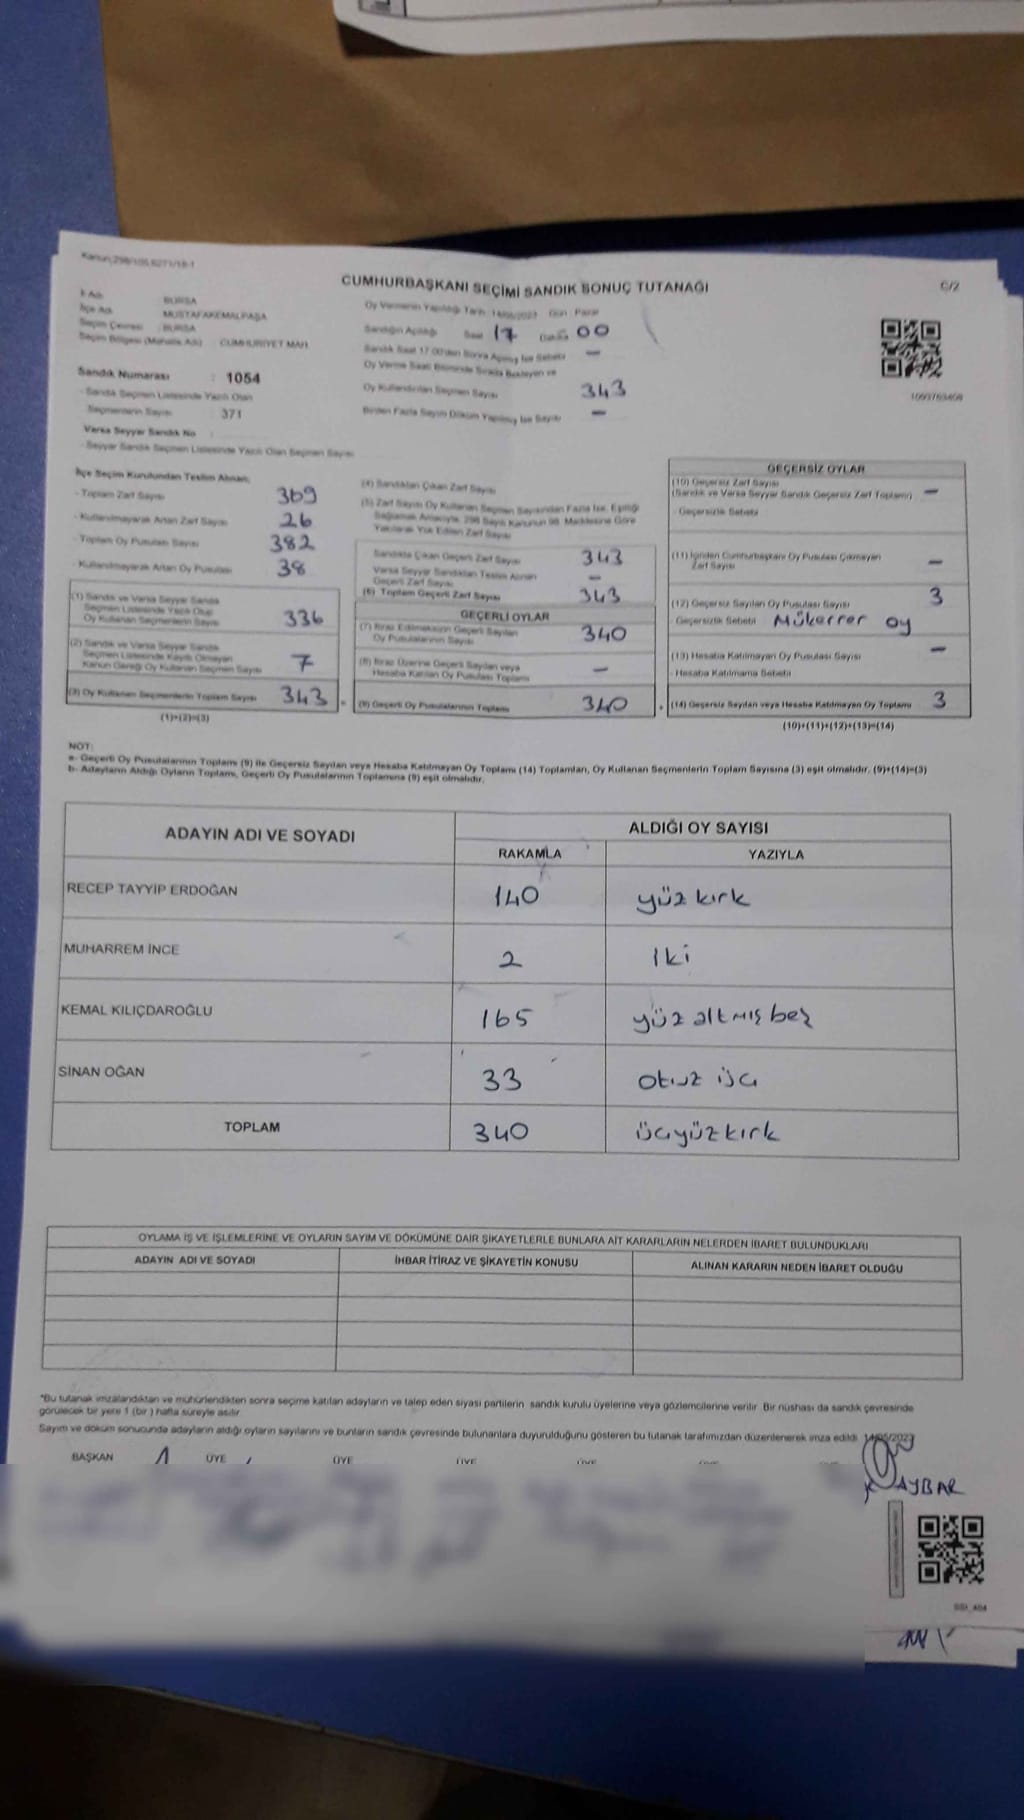 CUMHURBAŞKANI SEÇİMİ SANDIK SONUÇ TUTANAĞI
C/2
İl Adı : BURSA
İlçe Adı : MUSTAFAKEMALPAŞA
Seçim Çevresi : BURSA
Seçim Bölgesi (Mahalle Adı) : CUMHURİYET MAH
Sandık Numarası : 1054
- Sandık Seçmen Listesinde Yazılı Olan
Seçmenlerin Sayısı : 371
Varsa Seyyar Sandık No :
- Seyyar Sandık Seçmen Listesinde Yazılı Olan Seçmen Sayısı
Oy Vermenin Yapıldığı Tarih : 14/05/2023 Gün : Pazar
Sandığın Açılışı Saat 17 Dakika 00
Sandık Saat 17:00'den Sonra Açılmış İse Sebebi —
Oy Verme Saati Bitiminde Sırada Bekleyen ve
Oy Kullandırılan Seçmen Sayısı 343
Birden Fazla Sayım Döküm Yapılmış İse Sayısı —
İlçe Seçim Kurulundan Teslim Alınan;
- Toplam Zarf Sayısı 369
- Kullanılmayarak Artan Zarf Sayısı 26
- Toplam Oy Pusulası Sayısı 382
- Kullanılmayarak Artan Oy Pusulası 38
(1) Sandık ve Varsa Seyyar Sandık
Seçmen Listesinde Yazılı Olup
Oy Kullanan Seçmenlerin Sayısı 336
(2) Sandık ve Varsa Seyyar Sandık
Seçmen Listesinde Kayıtlı Olmayan
Kanun Gereği Oy Kullanan Seçmen Sayısı 7
(3) Oy Kullanan Seçmenlerin Toplam Sayısı 343
(1)+(2)=(3)
(4) Sandıktan Çıkan Zarf Sayısı
(5) Zarf Sayısı Oy Kullanan Seçmen Sayısından Fazla İse, Eşitliği
Sağlamak Amacıyla, 298 Sayılı Kanunun 98. Maddesine Göre
Yakılarak Yok Edilen Zarf Sayısı
Sandıkta Çıkan Geçerli Zarf Sayısı 343
Varsa Seyyar Sandıktan Teslim Alınan
Geçerli Zarf Sayısı —
(6) Toplam Geçerli Zarf Sayısı 343
GEÇERLİ OYLAR
(7) İtiraz Edilmeksizin Geçerli Sayılan
Oy Pusulalarının Sayısı 340
(8) İtiraz Üzerine Geçerli Sayılan veya
Hesaba Katılan Oy Pusulası Toplamı —
(9) Geçerli Oy Pusulalarının Toplamı 340
GEÇERSİZ OYLAR
(10) Geçersiz Zarf Sayısı
(Sandık ve Varsa Seyyar Sandık Geçersiz Zarf Toplamı) —
- Geçersizlik Sebebi
(11) İçinden Cumhurbaşkanı Oy Pusulası Çıkmayan
Zarf Sayısı —
(12) Geçersiz Sayılan Oy Pusulası Sayısı 3
- Geçersizlik Sebebi Mükerrer oy
(13) Hesaba Katılmayan Oy Pusulası Sayısı —
- Hesaba Katılmama Sebebi
(14) Geçersiz Sayılan veya Hesaba Katılmayan Oy Toplamı 3
(10)+(11)+(12)+(13)=(14)
NOT:
a- Geçerli Oy Pusulalarının Toplamı (9) ile Geçersiz Sayılan veya Hesaba Katılmayan Oy Toplamı (14) Toplamları, Oy Kullanan Seçmenlerin Toplam Sayısına (3) eşit olmalıdır. (9)+(14)=(3)
b- Adayların Aldığı Oyların Toplamı, Geçerli Oy Pusulalarının Toplamına (9) eşit olmalıdır.
ADAYIN ADI VE SOYADI
ALDIĞI OY SAYISI
RAKAMLA YAZIYLA
RECEP TAYYİP ERDOĞAN 140 yüz kırk
MUHARREM İNCE 2 İki
KEMAL KILIÇDAROĞLU 165 yüz altmış beş
SİNAN OĞAN 33 otuz üç
TOPLAM 340 üçyüzkırk
OYLAMA İŞ VE İŞLEMLERİNE VE OYLARIN SAYIM VE DÖKÜMÜNE DAİR ŞİKAYETLERLE BUNLARA AİT KARARLARIN NELERDEN İBARET BULUNDUKLARI
ADAYIN ADI VE SOYADI İHBAR İTİRAZ VE ŞİKAYETİN KONUSU ALINAN KARARIN NEDEN İBARET OLDUĞU
*Bu tutanak imzalandıktan ve mühürlendikten sonra seçime katılan adayların ve talep eden siyasi partilerin sandık kurulu üyelerine veya gözlemcilerine verilir. Bir nüshası da sandık çevresinde
görülecek bir yere 1 (bir) hafta süreyle asılır.
Sayım ve döküm sonucunda adayların aldığı oyların sayılarını ve bunların sandık çevresinde bulunanlara duyurulduğunu gösteren bu tutanak tarafımızdan düzenlenerek imza edildi. 14/05/2023
BAŞKAN ÜYE ÜYE ÜYE ÜYE
AYBAR